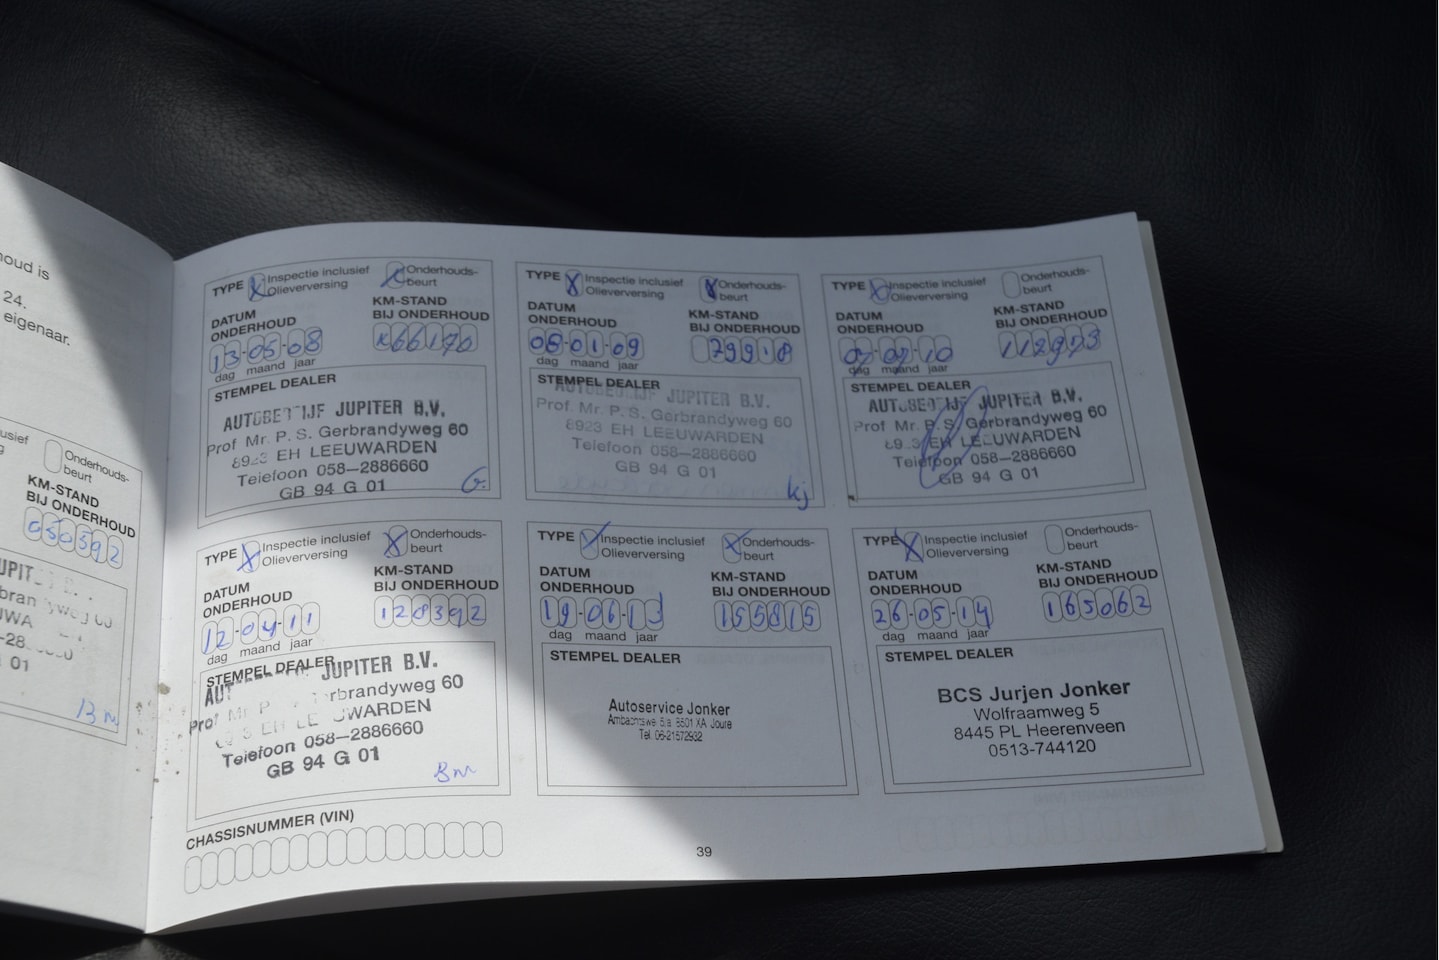 houd is
24.
eigenaar.
usief
Onderhouds-
beurt
KM-STAND
BIJ ONDERHOUD
050592
01
Bm
TYPE Inspectie inclusief Onderhouds-
Olieverversing beurt
DATUM KM-STAND
ONDERHOUD BIJ ONDERHOUD
13-05-08 x66170
dag maand jaar
STEMPEL DEALER
JUPITER B.V.
Prof Mr. P. S. Gerbrandyweg 60
EH LEEUWARDEN
Telefoon 058-2886660
GB 94 G 01
G.
TYPE Inspectie inclusief Onderhouds-
Olieverversing beurt
DATUM KM-STAND
ONDERHOUD BIJ ONDERHOUD
06-01-09 79918
dag maand jaar
STEMPEL DEALER
JUPITER B.V.
Prof. Mr. P. S. Gerbrandyweg 60
8923 EH LEEUWARDEN
Telefoon 058-2886660
GB 94 G 01
kj
TYPE Inspectie inclusief Onderhouds-
Olieverversing beurt
DATUM KM-STAND
ONDERHOUD BIJ ONDERHOUD
10 112973
dag maand jaar
STEMPEL DEALER
JUPITER B.V.
Prof Mr. P.S. Gerbrandyweg 60
EH LEEUWARDEN
Telefoon 058-2886660
GB 94 G 01
TYPE Inspectie inclusief Onderhouds-
Olieverversing beurt
DATUM KM-STAND
ONDERHOUD BIJ ONDERHOUD
12-04-11 128392
dag maand jaar
STEMPEL DEALER
JUPITER B.V.
60
Telefoon 058-2886660
GB 94 G 01
Bm
TYPE Inspectie inclusief Onderhouds-
Olieverversing beurt
DATUM KM-STAND
ONDERHOUD BIJ ONDERHOUD
19-06-13 155815
dag maand jaar
STEMPEL DEALER
Autoservice Jonker
8501 XA Joure
Tel. 06-21572932
TYPE Inspectie inclusief Onderhouds-
Olieverversing beurt
DATUM KM-STAND
ONDERHOUD BIJ ONDERHOUD
26-05-14 165062
dag maand jaar
STEMPEL DEALER
BCS Jurjen Jonker
Wolfraamweg 5
8445 PL Heerenveen
0513-744120
CHASSISNUMMER (VIN)
39